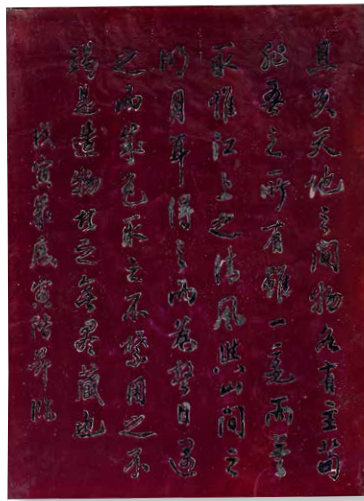 且夫天地之間物各有主苟
非吾之所有雖一毫而莫
取惟江上之清風與山間之
明月耳得之而為聲目遇
之而成色取之不禁用之不
竭是造物者之無盡藏也
戊寅